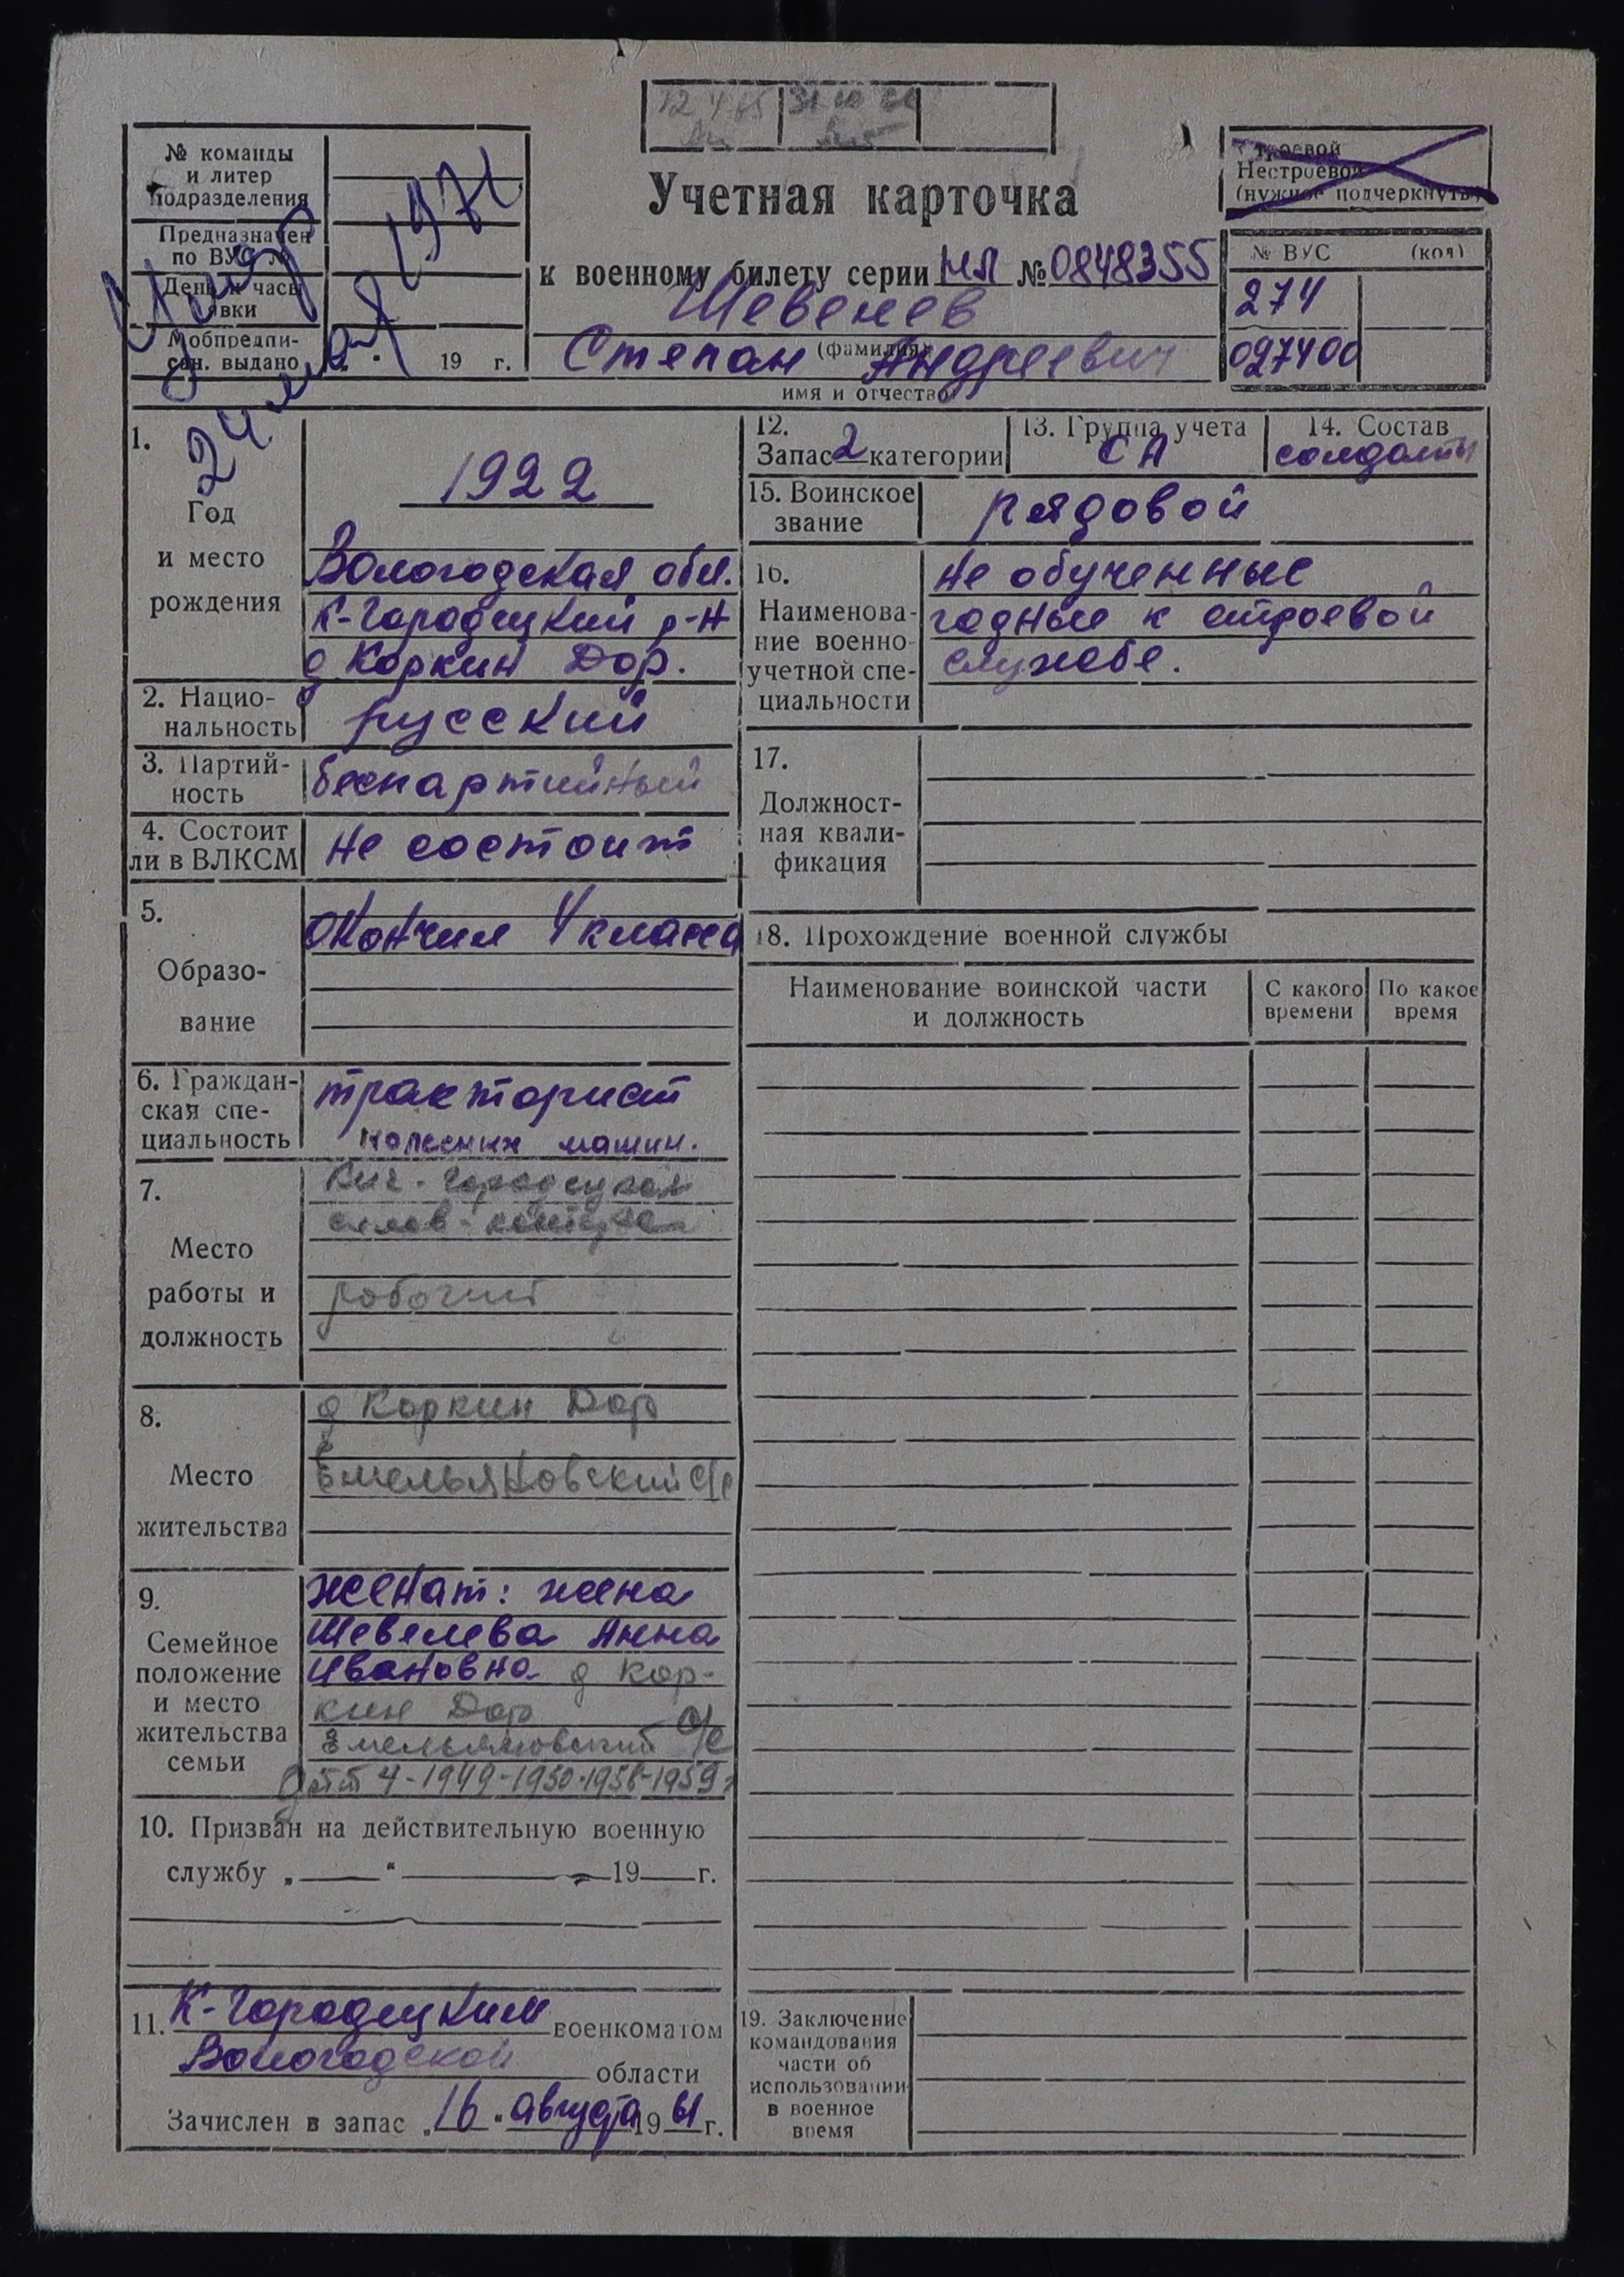 12 4 65
31 10
№ команды
и литер
подразделения
Предназначен
по ВУС №
День и часы
явки
Мобпредпи-
сан. выдано „ “ 19 г.
Умер
24 мая 1971
Учетная карточка
к военному билету серии НЛ № 0848355
Шевелев
(фамилия)
Степан Андреевич
имя и отчество
Строевой
Нестроевой
(нужное подчеркнуть)
№ ВУС (код)
274
097400
1.
Год
и место
рождения
1922
Вологодская обл.
К-Городецкий р-н
д. Коркин Дор.
2. Нацио-
нальность
русский
3. Партий-
ность
беспартийный
4. Состоит
ли в ВЛКСМ
не состоит
5.
Образо-
вание
окончил 4 класса
6. Граждан-
ская спе-
циальность
тракторист
колесных машин.
7.
Место
работы и
должность
Кич-Городецкая
рабочий
8.
Место
жительства
д Коркин Дор
Емельяновский с/с
9.
Семейное
положение
и место
жительства
семьи
женат: жена
Шевелева Анна
Ивановна д Кор-
кин Дор
Емельяновский с/с
дети 4-1949-1950-1956-1959г
10. Призван на действительную военную
службу „ “ 19 г.
11. К-Городецким военкоматом
Вологодской области
Зачислен в запас „16“ августа 1961 г.
12.
Запас 2 категории
13. Группа учета
СА
14. Состав
солдаты
15. Воинское
звание
рядовой
16.
Наименова-
ние военно-
учетной спе-
циальности
не обученные
годные к строевой
службе.
17.
Должност-
ная квали-
фикация
18. Прохождение военной службы
Наименование воинской части
и должность
С какого
времени
По какое
время
19. Заключение
командования
части об
использовании
в военное
время